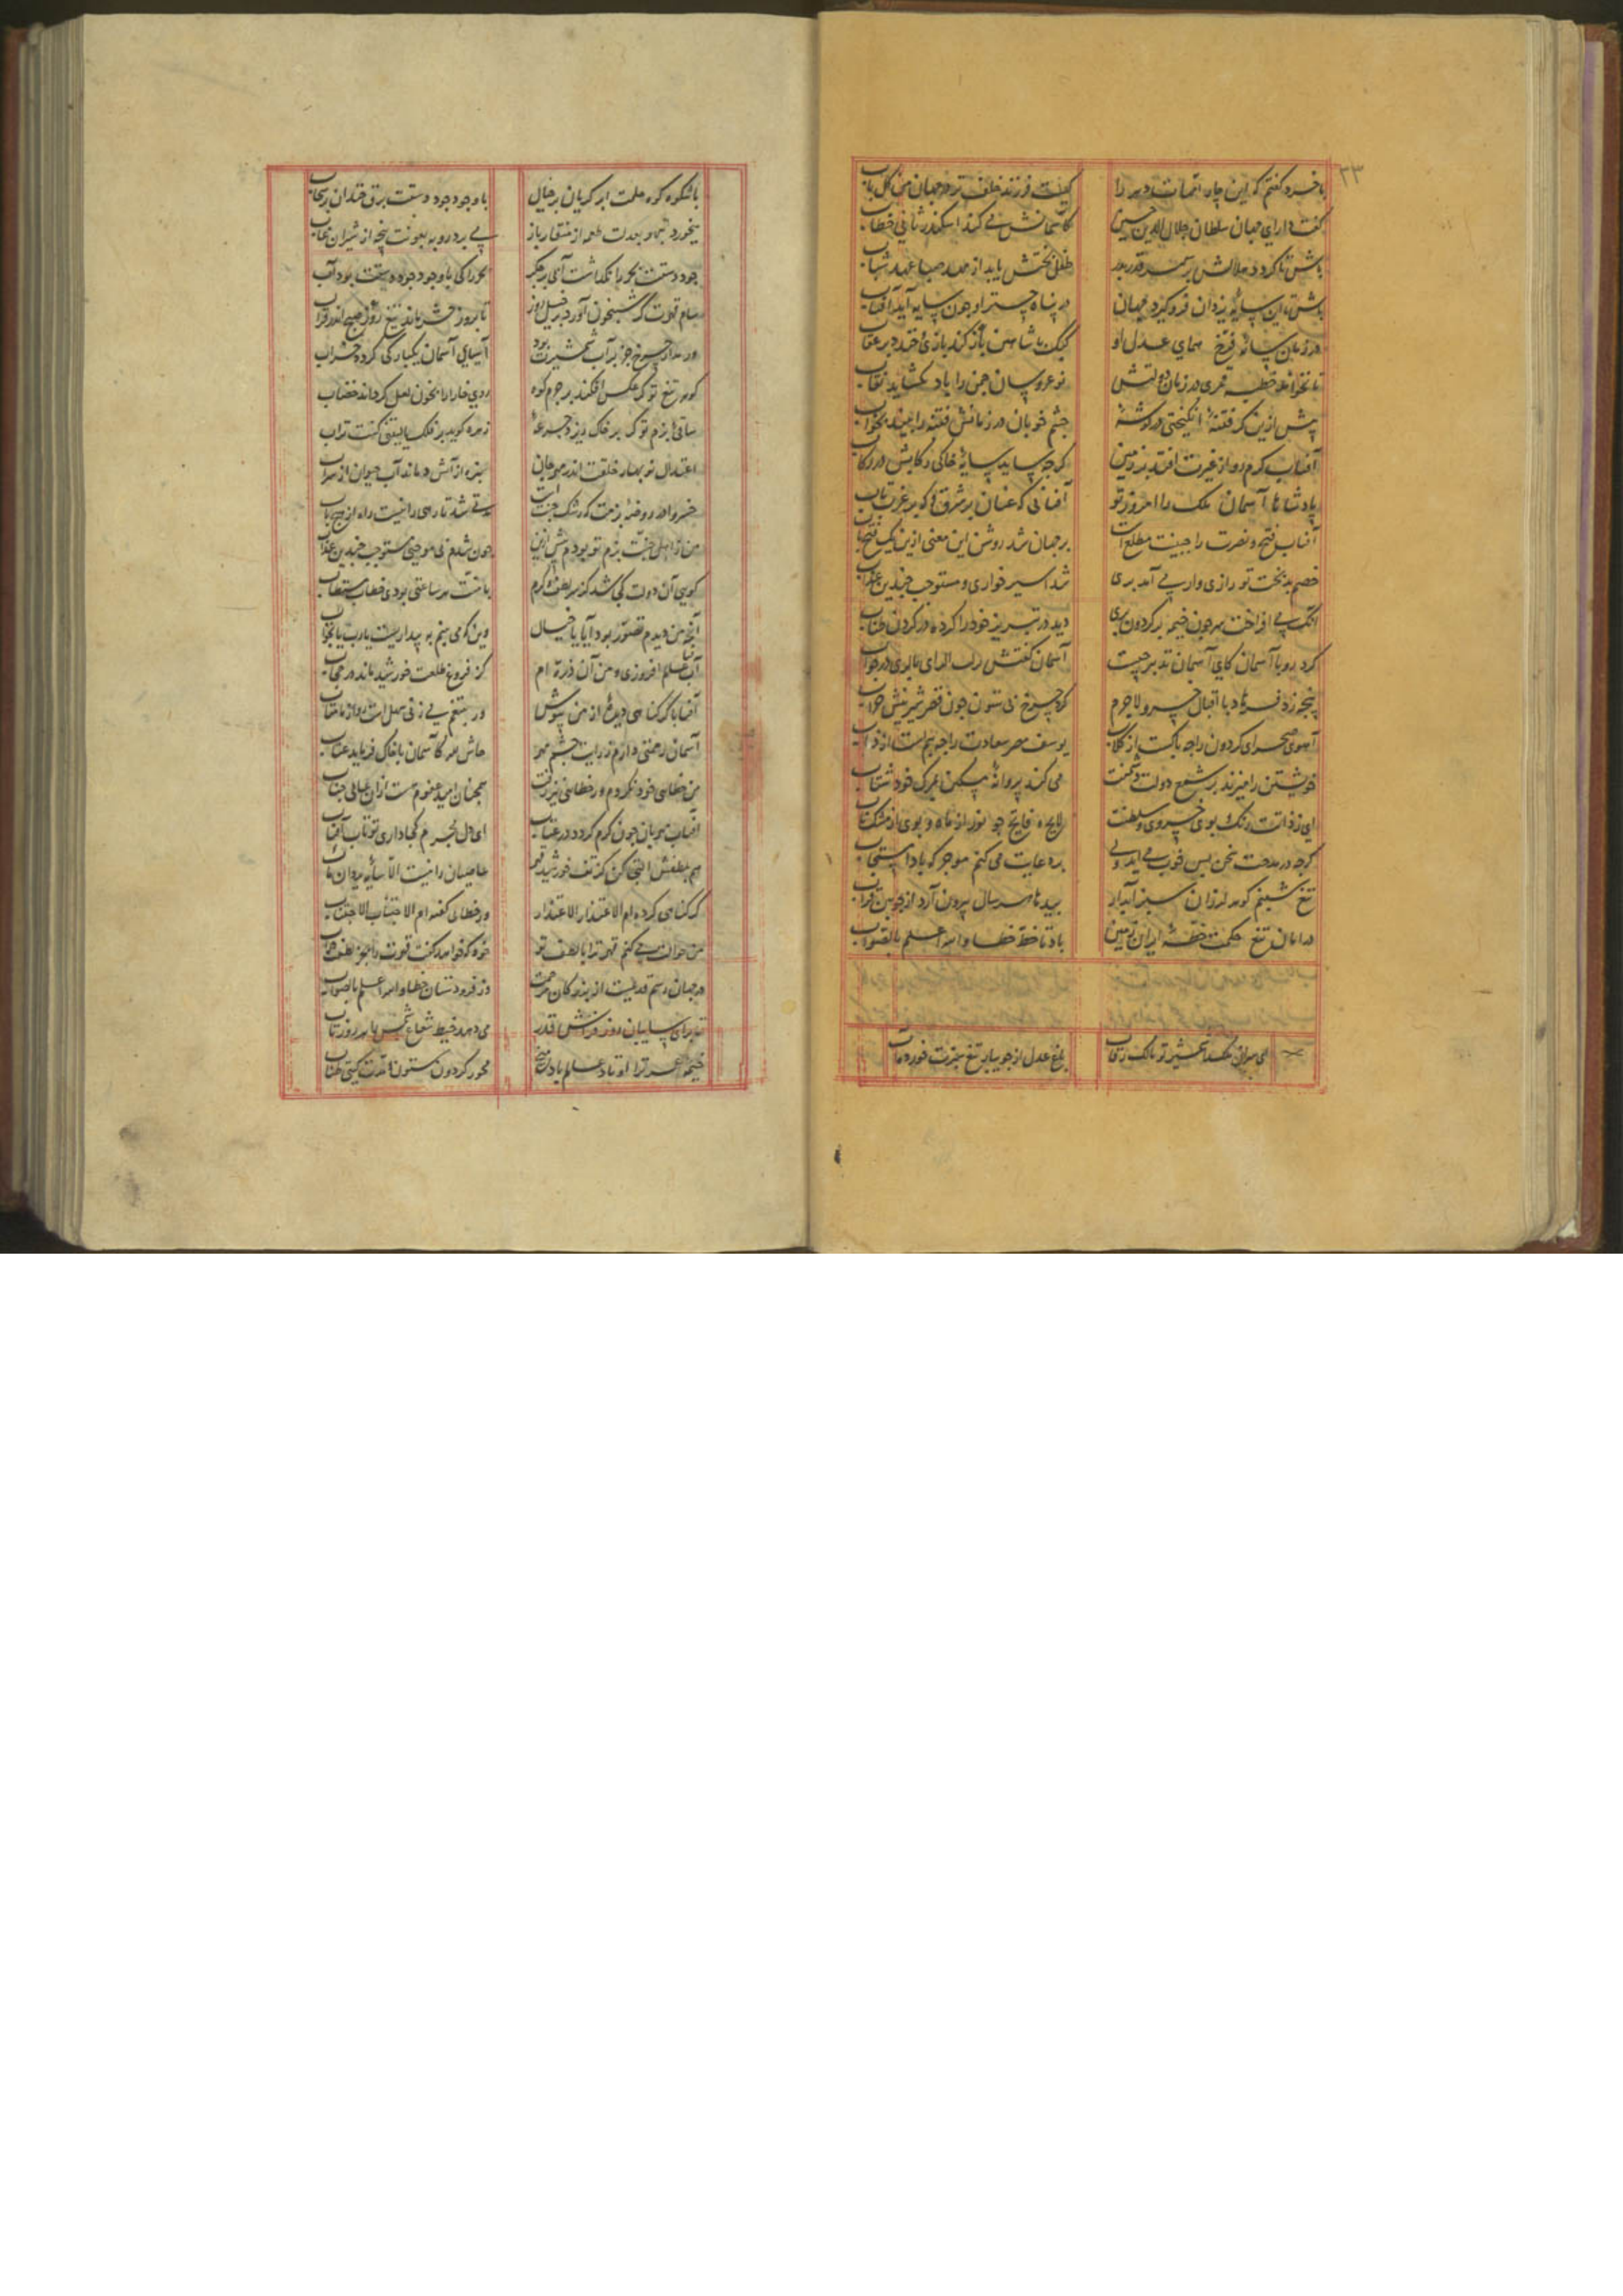 ۳۳
با خرد گفتم که این چار امهات دهر را کیست فرزند خلف تر در جهان من کل باب
گفت دارای جهان سلطان جلال الدین حسین کاسمانش می کند اسکندر ثانی خطاب
باش تا گردد جلالش بر سمند قدر طفل بختش یابد از مهد صبا عهد شباب
باش تا این سایهٔ یزدان فرو گیرد جهان در پناه چتر او چون سایه آید آفتاب
در زمان سایهٔ فرخ همای عدل او کبک با شاهین باز کند بازی خندد بر عقاب
تا نخواند خطبه قمری در زمان دولتش نوعروسان چمن را باد نگشاید نقاب
پیش ازین گر فتنهٔ انگیختی در گوشهٔ چشم خوبان در زمانش فتنه را بیند بخواب
آفتاب گرم رو از غیرت افتد بر زمین گر چه ساید سایهٔ خاکی رکابش در رکاب
پادشاها آسمان ملک را امروز تو آفتابی که عنان بر شرق که بر غرب تاب
آفتاب فتح و نصرت را جبینت مطلع است بر جهان شد روشن این معنی ازین یک فتح باب
خصم بدبخت تو رازی وار می آمد بری شد اسیر خواری و مستوجب چندین عذاب
آنک می افراخت سر چون خیمه بر گردون بری دید در تبریز خود را کرده در گردن طناب
کرد رو با آسمان کای آسمان تدبیر چیست آسمان گفتش در جواب
پنجه زد فرهاد با اقبال خسرو لاجرم کرد چرخ بی ستون چون قصر شیرینش خراب
آهوی صحرای گردون را چه باکست از کلاب یوسف مصر سعادت را چه بیم است از ذئاب
خویشتن را میزند بر شمع دولت دشمنت می کند پروانهٔ مسکین بمرگ خود شتاب
ای ز ذاتت رنگ بوی خسروی و سلطنت لایح و فایح چو نور از ماه و بوی از مشک ناب
گر چه در مدحت سخن بس خوب می آید ولی بر دعایت می کنم موجز که بادا مستجاب
تیغ شبنم گوهر لرزان سبز آبدار بید تا هر سال بیرون آرد از چوبین قراب
در امان تیغ حکمت خطهٔ ایران زمین باد تا خط خطا والله اعلم بالصواب
ای سواران شمشیر تو مالک رقاب باغ عدل از جویبار تیغ سبزت خورده آب
با شکوه کوه حلمت ابر گریان بر جبال با وجود جود دستت برق خندان بر سحاب
می خورد تیهو بعدلت طعمه از منقار باز می برد روبه بعونت پنجه از شیران غاب
جود دستت بحر را نگذاشت آبی بر جگر بحر را کی با وجود جود دستت بود آب
سام قدرت گر شبیخون آورد بر خیل روز تا بروز حشر ماند تیغ روز صبح اندر قراب
ور مدار چرخ جز بر آب شمشیرت بود آسیای آسمان یکبارگی گردد خراب
گوهر تیغ تو گر عکس افکند بر جرم کوه روی خارا را بخون لعل گرداند خضاب
ساقی بزم تو گر بر خاک ریزد جرعهٔ زهره گوید بر فلک یا لیتنی کنت تراب
اعتدال نوبهار خلقت اندر مهرجان سبزه از آتش دماند آب حیوان از سراب
خسروا در روضهٔ بزمت که رشک جنت است مدتی شد تا رهی را نیست راه از هیچ باب
من ز اهل جنت بزم تو بودم پیش ازین چون شدم بی موجبی مستوجب چندین عذاب
گویی آن دولت کجا شد کز سر لطف و کرم با منت هر ساعتی بودی خطاب مستطاب
آنچه من دیدم تصور بود آیا یا خیال وین که می بینم به بیداریست یارب یا بخواب
آفتاب عالم افروزی و من آن ذره ام کز فروغ طلعت خورشید ماند در حجاب
آفتابا گر گناهی دیدهٔ از من بپوش ور بتیغم می زنی سهل است رو از ما متاب
آسمان رحمتی دارم ز رایت چشم مهر حاش لله کاسمان با خاک فرماید عتاب
من خطایی خود نکردم ور خطایی نیز رفت همچنان امید عفوم هست از آن عالی جناب
آفتاب مهربان چون گرم گردد در عتاب ای دل مجرم کجا داری تو تاب آفتاب
هم بلطفش التجا کن کز تف خورشید قهر عاصیان را نیست الا سایهٔ یزدان مآب
گر گناهی کرده ام الاعتذار الاعتذار ور خطایی گفته ام الاجتناب الاجتناب
من حوالت می کنم قهر ترا با لطف تو خود که خواهد گفت قهرت را بجز لطفت جواب
در جهان رسم قدیمست از بزرگان مرحمت وز فرودستان خطا والله اعلم بالصواب
تا برای سایبان روز فراش قدر می دهد خیط شعاع شمس را هر روز تاب
خیمهٔ عمر ترا اوتاد عالم باد میخ محور گردون ستون مدت گیتی طناب